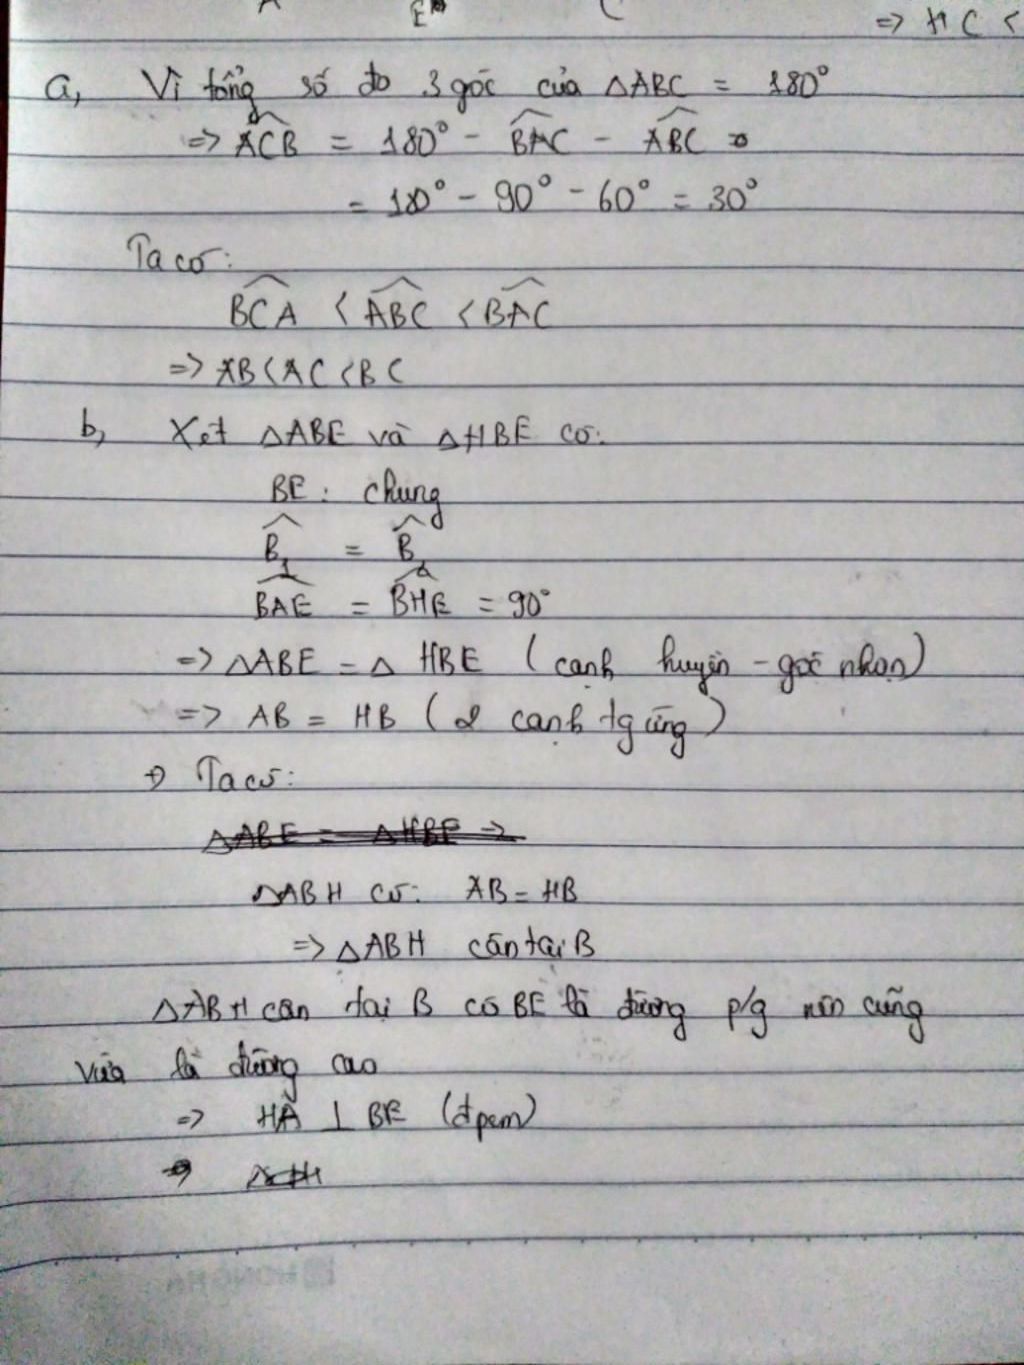 A E C
=> HC <
a, Vì tổng số đo 3 góc của △ABC = 180°
=> ACB = 180° - BAC - ABC
= 180° - 90° - 60° = 30°
Ta có:
BCA < ABC < BAC
=> AB < AC < BC
b, Xét △ABE và △HBE có:
BE : chung
B1 = B2
BAE = BHE = 90°
=> △ABE = △HBE (cạnh huyền - góc nhọn)
=> AB = HB (2 cạnh tg ứng)
Ta có:
△ABE = △HBE =>
△ABH có: AB = HB
=> △ABH cân tại B
△ABH cân tại B có BE là đường p/g nên cũng
vừa là đường cao
=> HA ⊥ BE (đpcm)
=>
HONG HA